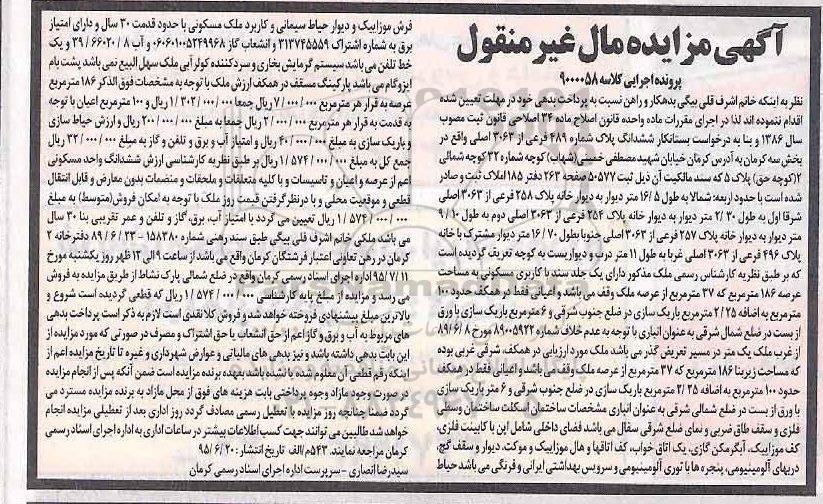 آگهی مزایده مال غیر منقول
پرونده اجرایی کلاسه ۹۰۰۰۰۵۸
نظر به اینکه خانم اشرف قلی بیگی بدهکار و راهن نسبت به پرداخت بدهی خود در مهلت تعیین شده
اقدام ننموده اند لذا در اجرای مقررات ماده واحده قانون اصلاح ماده ۳۴ اصلاحی قانون ثبت مصوب
سال ۱۳۸۶ و بنا به درخواست بستانکار ششدانگ پلاک شماره ۴۸۹ فرعی از ۳۰۶۳ اصلی واقع در
بخش سه کرمان به آدرس کرمان خیابان شهید مصطفی خمینی (شهاب) کوچه شماره ۳۲ کوچه شمالی
۲(کوچه حق) پلاک ۵ که سند مالکیت آن ذیل ثبت ۵۰۵۷۷ صفحه ۲۶۳ دفتر ۱۸۵ املاک ثبت و صادر
شده است با حدود اربعه: شمالا به طول ۱۶/۵ متر دیوار به دیوار خانه پلاک ۲۵۸ فرعی از ۳۰۶۳ اصلی
شرقا اول به طول ۲/۳۰ متر دیوار به دیوار خانه پلاک ۲۵۴ فرعی از ۳۰۶۳ اصلی دوم به طول ۹/۱۰
متر دیوار به دیوار خانه پلاک ۲۵۷ فرعی از ۳۰۶۳ اصلی جنوبا بطول ۱۶/۷۰ متر دیوار مشترک با خانه
پلاک ۴۹۶ فرعی از ۳۰۶۳ اصلی غربا به طول ۱۱ متر درب و دیواریست به کوچه تعریف گردیده است
که بر طبق نظریه کارشناس رسمی ملک مذکور دارای یک جلد سند با کاربری مسکونی به مساحت
عرصه ۱۸۶ مترمربع که ۳۷ مترمربع از عرصه ملک وقف می باشد و اعیانی فقط در همکف حدود ۱۰۰
مترمربع به اضافه ۲/۲۵ مترمربع باریک سازی در ضلع جنوب شرقی و ۶ مترمربع باریک سازی با ورق
از بست در ضلع شمال شرقی به عنوان انباری با توجه به عدم خلاف شماره ۸۹۰۰۵۹۲۲ مورخ ۸۹/۶/۸
از غرب ملک یک متر در مسیر تعریض گذر می باشد ملک مورد ارزیابی در همکف، شرقی غربی بوده
که مساحت زیربنا ۱۸۶ مترمربع که ۳۷ مترمربع از عرصه ملک وقف می باشد و اعیانی فقط در همکف
حدود ۱۰۰ مترمربع به اضافه ۲/۲۵ مترمربع باریک سازی در ضلع جنوب شرقی و ۶ متر باریک سازی
با ورق از بست در ضلع شمال شرقی به عنوان انباری مشخصات ساختمان اسکلت ساختمان وسطی
فلزی و سقف طاق ضربی و نمای ضلع شرقی سفال می باشد فضای داخلی شامل اپن با کابینت فلزی،
کف موزاییک، آبگرمکن گازی، یک اتاق خواب، کف اتاقها و هال موزاییک و موکت، دیوار و سقف گچ،
دربهای آلومینیومی، پنجره ها با توری آلومینیومی و سرویس بهداشتی ایرانی و فرنگی می باشد حیاط
فرش موزاییک و دیوار حیاط سیمانی و کاربرد ملک مسکونی با حدود قدمت ۳۰ سال و دارای امتیاز
برق به شماره اشتراک ۳۱۳۷۴۵۵۵۹ و انشعاب گاز ۰۶۰۶۰۱۰۰۵۳۴۹۹۶۸ و آب ۳۹/۶۶۰۲۰/۸ و یک
خط تلفن می باشد سیستم گرمایش بخاری و سرد کننده کولر آبی ملک سهل البیع نمی باشد پشت بام
ایزوگام می باشد پارکینگ مسقف در همکف ارزش ملک با توجه به مشخصات فوق الذکر ۱۸۶ مترمربع
عرصه به قرار هر مترمربع ۷/۰۰۰/۰۰۰ ریال جمعا ۱/۳۰۲/۰۰۰/۰۰۰ ریال و ۱۰۰ مترمربع اعیان با توجه
به قدمت به قرار هر مترمربع ۲/۰۰۰/۰۰۰ ریال جمعا به مبلغ ۲۰۰/۰۰۰/۰۰۰ ریال و ارزش حیاط سازی
و باریک سازی به مبلغ ۴۰/۰۰۰/۰۰۰ ریال و امتیاز آب و برق و تلفن و گاز به مبلغ ۳۲/۰۰۰/۰۰۰ ریال
جمع کل به مبلغ ۱/۵۷۴/۰۰۰/۰۰۰ ریال بر طبق نظریه کارشناسی ارزش ششدانگ واحد مسکونی
اعم از عرصه و اعیان و تاسیسات و با کلیه متعلقات و ملحقات و منضمات بدون معارض و قابل انتقال
قطعی و موقعیت محلی و با در نظر گرفتن قیمت روز ملک با توجه به امکان فروش (متوسط) به مبلغ
۱/۵۷۴/۰۰۰/۰۰۰ ریال تعیین می گردد با امتیاز آب، برق، گاز و تلفن و عمر تقریبی بنا ۳۰ سال
می باشد ملکی خانم اشرف قلی بیگی طبق سند رهنی شماره ۱۵۸۳۸۰ - ۸۹/۶/۲۳ دفترخانه ۲
کرمان در رهن تعاونی اعتبار فرشتگان کرمان واقع می باشد از ساعت ۹ الی ۱۲ ظهر روز یکشنبه مورخ
۹۵/۷/۱۱ اداره اجرای اسناد رسمی کرمان واقع در ضلع شمالی پارک نشاط از طریق مزایده به فروش
می رسد و مزایده از مبلغ پایه کارشناسی ۱/۵۷۴/۰۰۰/۰۰۰ ریال که قطعی گردیده است شروع و
بالاترین مبلغ پیشنهادی فروخته خواهد شد و فروش کلا نقدی است لازم به ذکر است پرداخت بدهی
های مربوط به آب و برق و گاز اعم از حق انشعاب یا حق اشتراک و مصرف در صورتی که مورد مزایده از
این بابت بدهی داشته باشد و نیز بدهی های مالیاتی و عوارض شهرداری و غیره تا تاریخ مزایده اعم از
اینکه رقم قطعی آن معلوم شده یا نشده باشد بعهده برنده مزایده است ضمن آنکه پس از انجام مزایده
در صورت وجود مازاد وجوه پرداختی بابت هزینه های فوق از محل مازاد به برنده مزایده مسترد می
گردد ضمنا چنانچه روز مزایده با تعطیل رسمی مصادف گردد روز اداری بعد از تعطیلی مزایده انجام
خواهد شد طالبین می توانند جهت کسب اطلاعات بیشتر در ساعات اداری به اداره اجرای اسناد رسمی
کرمان مراجعه نمایند. ۵۴۳م/الف تاریخ انتشار: ۹۵/۶/۲۰
سیدرضا انصاری - سرپرست اداره اجرای اسناد رسمی کرمان